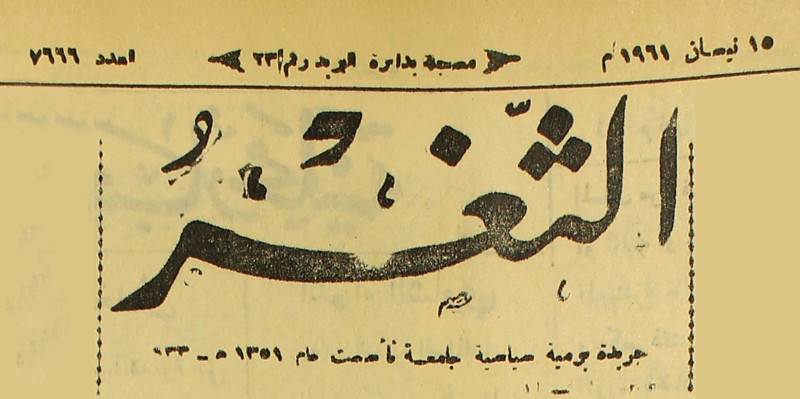 ١٥ نيسان ١٩٦١ م مسجلة بدائرة البريد رقم ٢٣ العدد ٧٦٦٦
الثَّغْرُ
جريدة يومية سياسية جامعة تأسست عام ١٣٥١ هـ ـ ٩٣٣